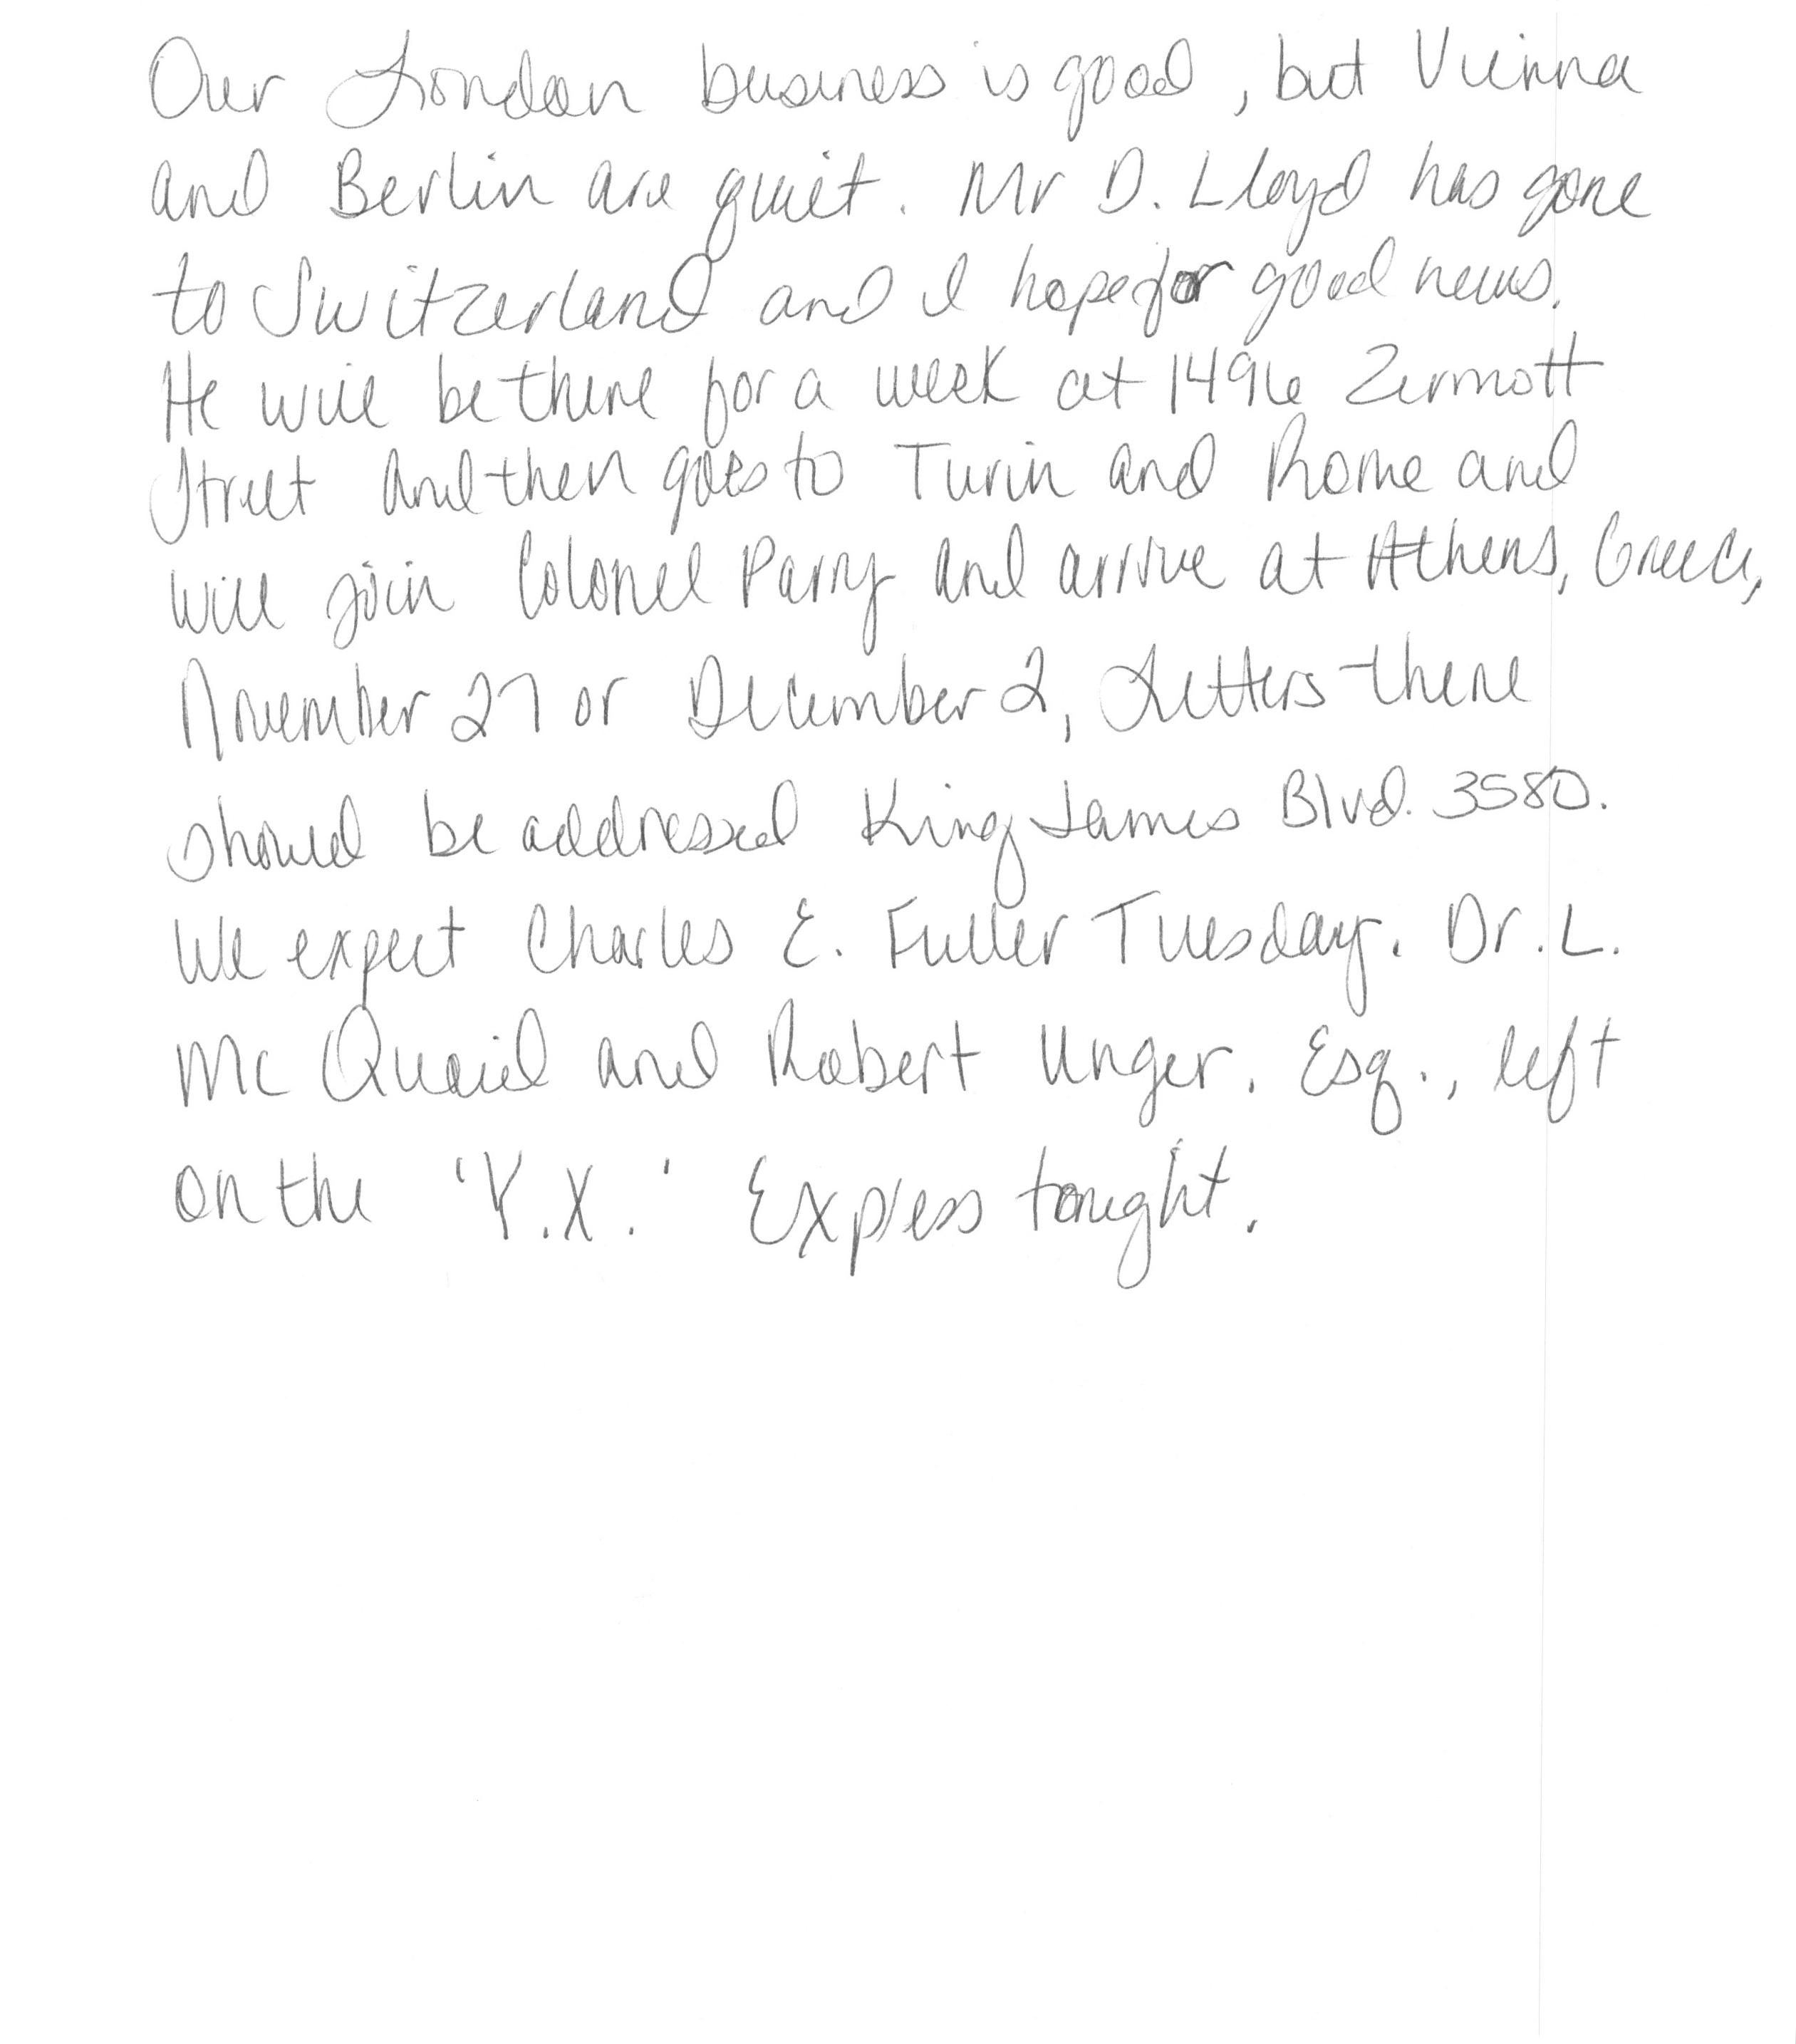 Our London business is good, but Vienna
and Berlin are quiet. Mr D. Lloyd has gone
to Switzerland and I hope for good news.
He will be there for a week at 1496 Zermott
Street and then goes to Turin and Rome and
will join Colonel Parry and arrive at Athens, Greece,
November 27 or December 2, Letters there
should be addressed King James Blvd. 3580.
We expect Charles E. Fuller Tuesday. Dr. L.
Mc Quaid and Robert Unger. Esq., left
on the 'Y.X.' Express tonight.